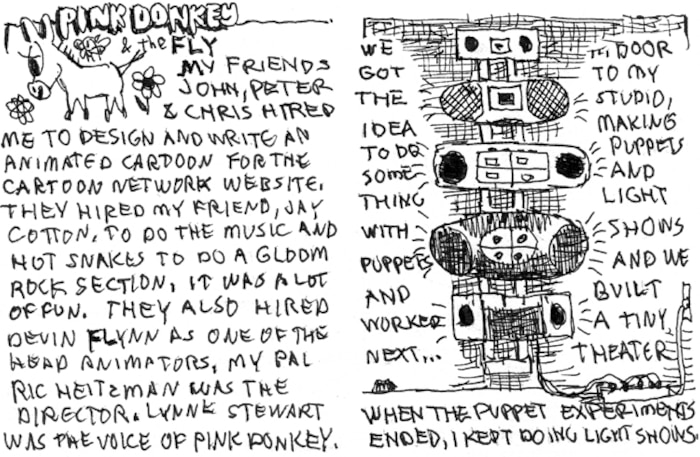 PINK DONKEY
& the FLY
MY FRIENDS
JOHN, PETER
& CHRIS HIRED
ME TO DESIGN AND WRITE AN
ANIMATED CARTOON FOR THE
CARTOON NETWORK WEBSITE.
THEY HIRED MY FRIEND, JAY
COTTON, TO DO THE MUSIC AND
HOT SNAKES TO DO A GLOOM
ROCK SECTION, IT WAS A LOT
OF FUN. THEY ALSO HIRED
DEVIN FLYNN AS ONE OF THE
HEAD ANIMATORS, MY PAL
RIC HEITZMAN WAS THE
DIRECTOR. LYNNE STEWART
WAS THE VOICE OF PINK DONKEY.
WE
GOT
THE
IDEA
TO DO
SOME
THING
WITH
PUPPETS
AND
WORKED
NEXT...
DOOR
TO MY
STUDIO,
MAKING
PUPPETS
AND
LIGHT
SHOWS
AND WE
BUILT
A TINY
THEATER
WHEN THE PUPPET EXPERIMENTS
ENDED, I KEPT DOING LIGHT SHOWS.